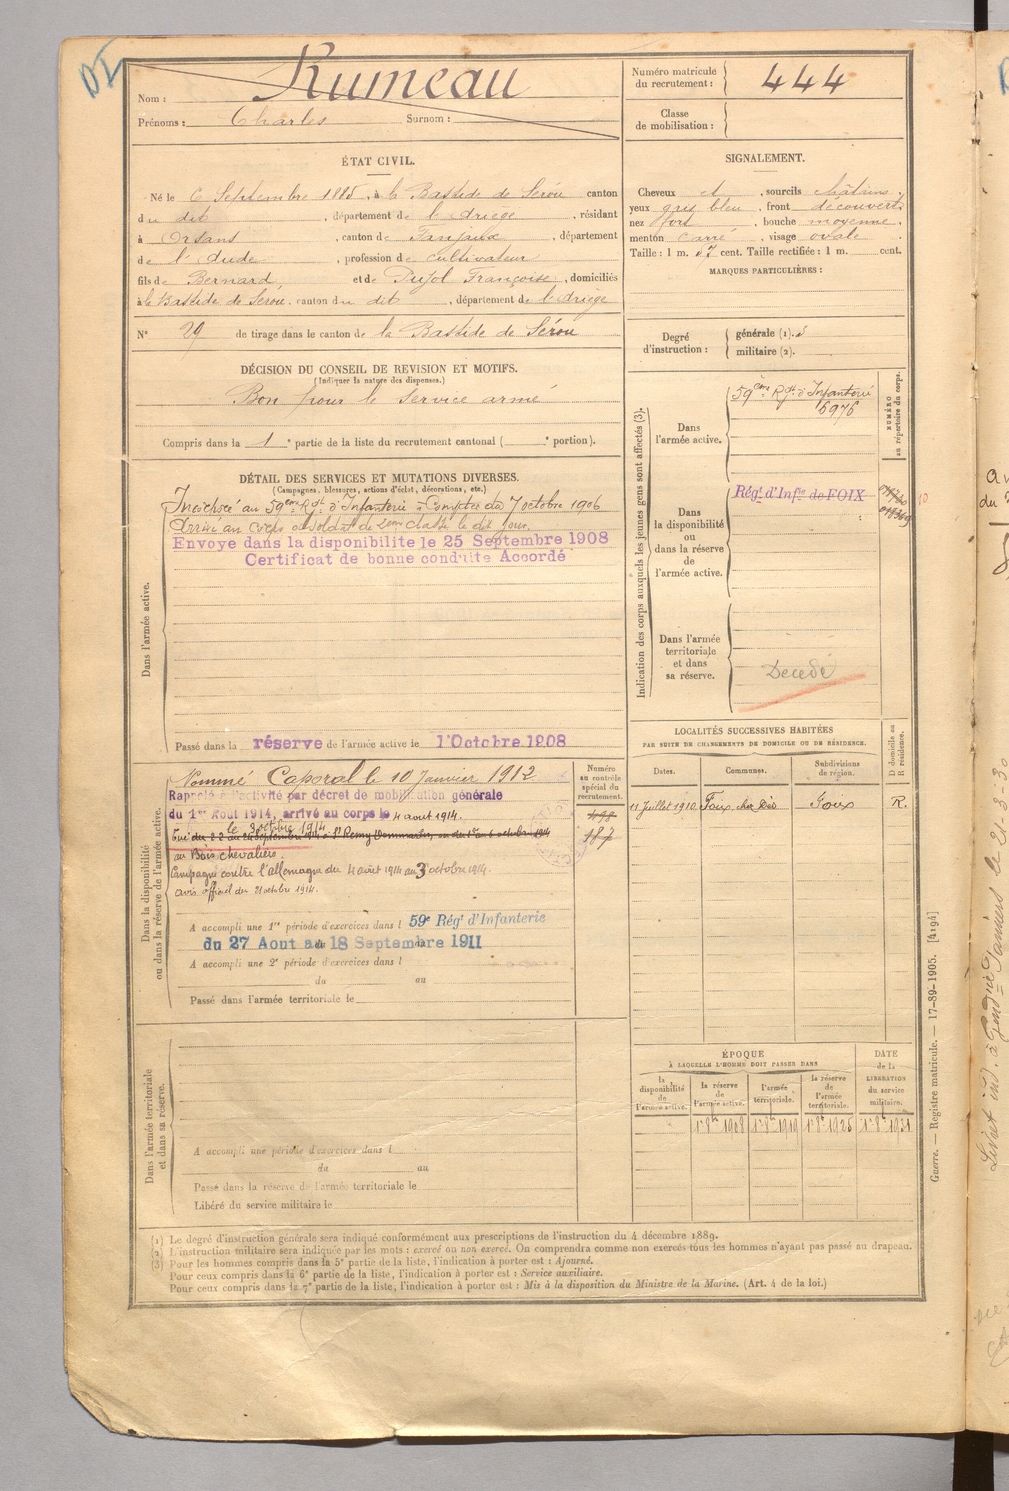 Rumeau
Nom :
Prénoms : Charles Surnom :
Numéro matricule
du recrutement : 444
Classe
de mobilisation :
ÉTAT CIVIL.
Né le 6 Septembre 1885, à la Bastide de Sérou canton
du dit, département de l'Ariège, résidant
à Orsans, canton de Fanjaux, département
de l'Aude, profession de cultivateur
fils de Bernard et de Pujol Françoise, domiciliés
à la Bastide de Sérou, canton du dit, département de l'Ariège
N° 29 de tirage dans le canton de la Bastide de Sérou
SIGNALEMENT.
Cheveux et, sourcils châtains,
yeux gris bleu, front découvert,
nez fort, bouche moyenne,
menton carré, visage ovale.
Taille : 1 m. 57 cent. Taille rectifiée : 1 m. cent.
MARQUES PARTICULIÈRES :
Degré
d'instruction :
générale (1).
militaire (2).
DÉCISION DU CONSEIL DE REVISION ET MOTIFS.
(Indiquer la nature des dispenses.)
Bon pour le Service armé
Compris dans la 1e partie de la liste du recrutement cantonal ( e portion).
DÉTAIL DES SERVICES ET MUTATIONS DIVERSES.
(Campagnes, blessures, actions d'éclat, décorations, etc.)
Dans l'armée active.
Incorporé au 59ème Rgt d'Infanterie à Compter du 7 octobre 1906
Arrivé au corps et soldat de 2ème classe le dit jour.
Envoye dans la disponibilite le 25 Septembre 1908
Certificat de bonne conduite Accordé
Passé dans la réserve de l'armée active le 1 Octobre 1908
Dans la disponibilité
ou dans la réserve de l'armée active.
Nommé Caporal le 10 Janvier 1912
Rappelé à l'activité par décret de mobilisation générale
du 1er Aout 1914, arrivé au corps le 4 aout 1914.
le 3 octobre 1914
Tué
au Bois chevaliers.
Campagne contre l'allemagne du 4 août 1914 au 3 octobre 1914.
avis officiel du 21 octobre 1914.
A accompli une 1re période d'exercices dans l 59e Régt d'Infanterie
du 27 Aout au 18 Septembre 1911
A accompli une 2e période d'exercices dans l
du au
Passé dans l'armée territoriale le
Numéro
au contrôle
spécial du
recrutement.
187
Dans l'armée territoriale
et dans sa réserve.
A accompli une période d'exercices dans l
du au
Passé dans la réserve de l'armée territoriale le
Libéré du service militaire le
Indication des corps auxquels les jeunes gens sont affectés (3).
NUMÉRO
au répertoire du corps.
Dans
l'armée active.
59ème Rgt d'Infanterie
6976
Dans
la disponibilité
ou
dans la réserve
de
l'armée active.
Régt d'Infie de FOIX
Dans l'armée
territoriale
et dans
sa réserve.
Décédé
LOCALITÉS SUCCESSIVES HABITÉES
PAR SUITE DE CHANGEMENTS DE DOMICILE OU DE RÉSIDENCE.
D domicile ou
R résidence.
Dates. Communes. Subdivisions
de région.
11 Juillet 1910. Foix, Foix R.
ÉPOQUE
À LAQUELLE L'HOMME DOIT PASSER DANS
DATE
de la
LIBÉRATION
du service
militaire.
la
disponibilité
de
l'armée active.
la réserve
de
l'armée active.
l'armée
territoriale.
la réserve
de
l'armée
territoriale.
1r 8bre 1908 1r 8bre 1919 1r 8bre 1925 1r 8bre 1931
(1) Le degré d'instruction générale sera indiqué conformément aux prescriptions de l'instruction du 4 décembre 1889.
(2) L'instruction militaire sera indiquée par les mots : exercé ou non exercé. On comprendra comme non exercés tous les hommes n'ayant pas passé au drapeau.
(3) Pour les hommes compris dans la 5e partie de la liste, l'indication à porter est : Ajourné.
Pour ceux compris dans la 6e partie de la liste, l'indication à porter est : Service auxiliaire.
Pour ceux compris dans la 7e partie de la liste, l'indication à porter est : Mis à la disposition du Ministre de la Marine. (Art. 4 de la loi.)
Guerre. — Registre matricule. — 17-89-1905. [4194]